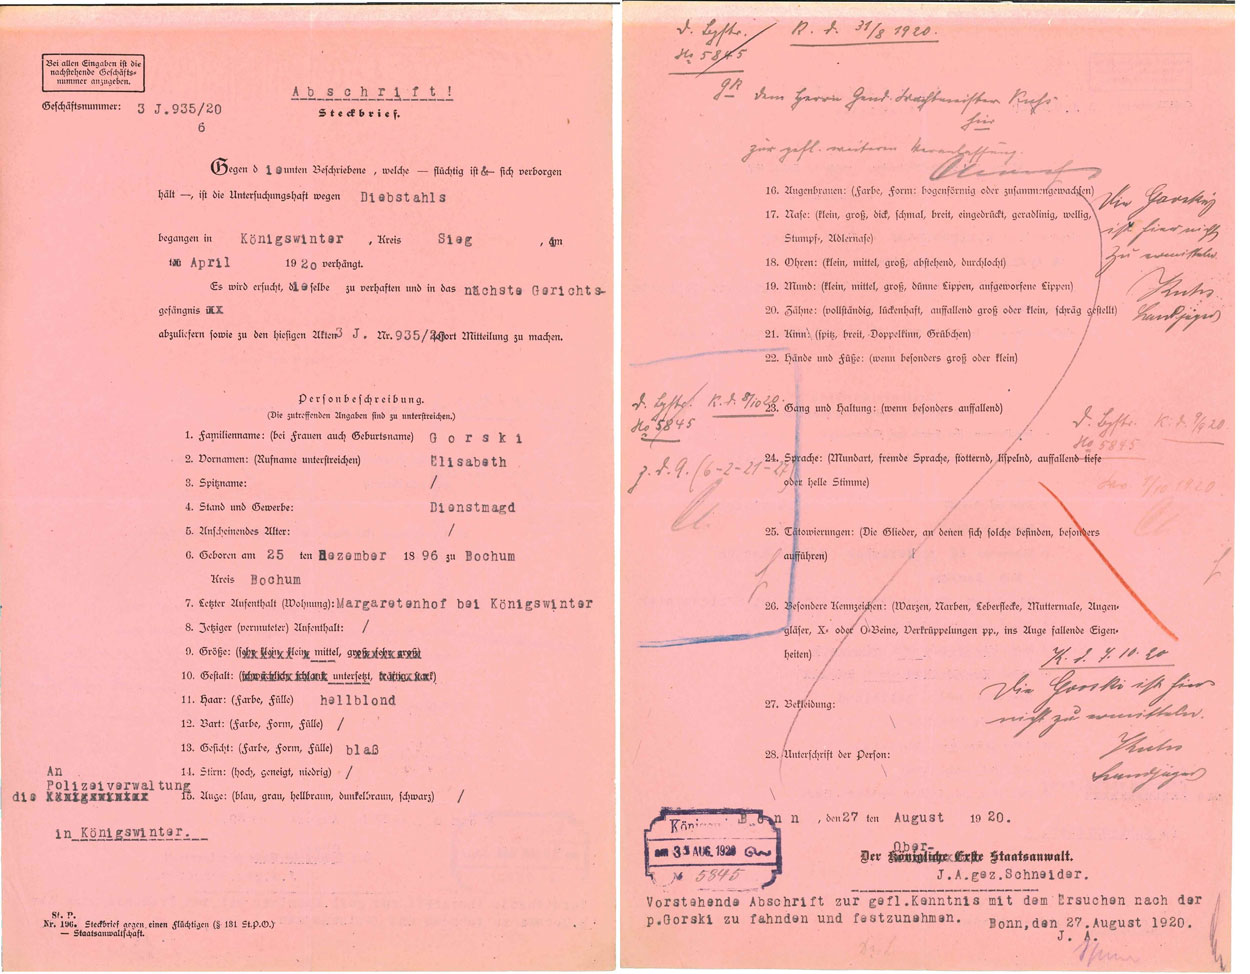 Bei allen Eingaben ist die
nachstehende Geschäfts-
nummer anzugeben.
Geschäftsnummer: 3 J.935/20
6
Abschrift!
Steckbrief.
Gegen d ie unten Beschriebene , welche — flüchtig ist & sich verborgen
hält —, ist die Untersuchungshaft wegen Diebstahls
begangen in Königswinter , Kreis Sieg , im
April 1920 verhängt.
Es wird ersucht, dieselbe zu verhaften und in das nächste Gerichts-
gefängnis
abzuliefern sowie zu den hiesigen Akten 3 J. Nr. 935/20 sofort Mitteilung zu machen.
Personbeschreibung.
(Die zutreffenden Angaben sind zu unterstreichen.)
1. Familienname: (bei Frauen auch Geburtsname) Gorski
2. Vornamen: (Rufname unterstreichen) Elisabeth
3. Spitzname: /
4. Stand und Gewerbe: Dienstmagd
5. Anscheinendes Alter: /
6. Geboren am 25 ten Dezember 1896 zu Bochum
Kreis Bochum
7. Letzter Aufenthalt (Wohnung): Margaretenhof bei Königswinter
8. Jetziger (vermuteter) Aufenthalt: /
9. Größe: (sehr klein, klein, mittel, groß, sehr groß)
10. Gestalt: (schwächlich, schlank, untersetzt, kräftig, stark)
11. Haar: (Farbe, Fülle) hellblond
12. Bart: (Farbe, Form, Fülle) /
13. Gesicht: (Farbe, Form, Fülle) blaß
14. Stirn: (hoch, geneigt, niedrig) /
15. Auge: (blau, grau, hellbraun, dunkelbraun, schwarz) /
An
Polizeiverwaltung
die Königswinter
in Königswinter.
St. P.
Nr. 196. Steckbrief gegen einen Flüchtigen (§ 131 St.P.O.)
— Staatsanwaltschaft.
K. d. 31/8 1920.
No 5845
dem Herrn Gend. Wachtmeister Kuhs
hier
zur gefl. weiteren Veranlassung.
16. Augenbrauen: (Farbe, Form: bogenförmig oder zusammengewachsen)
17. Nase: (klein, groß, dick, schmal, breit, eingedrückt, geradlinig, wellig,
Stumpf-, Adlernase)
18. Ohren: (klein, mittel, groß, abstehend, durchlocht)
19. Mund: (klein, mittel, groß, dünne Lippen, aufgeworfene Lippen)
20. Zähne: (vollständig, lückenhaft, auffallend groß oder klein, schräg gestellt)
21. Kinn: (spitz, breit, Doppelkinn, Grübchen)
22. Hände und Füße: (wenn besonders groß oder klein)
23. Gang und Haltung: (wenn besonders auffallend)
24. Sprache: (Mundart, fremde Sprache, stotternd, lispelnd, auffallend tiefe
oder helle Stimme)
25. Tätowierungen: (Die Glieder, an denen sich solche befinden, besonders
aufführen)
26. Besondere Kennzeichen: (Warzen, Narben, Leberflecke, Muttermale, Augen-
gläser, X- oder O-Beine, Verkrüppelungen pp., ins Auge fallende Eigen-
heiten)
27. Bekleidung:
28. Unterschrift der Person:
Die Gorski
ist hier nicht
zu ermitteln.
Kuhs
Landjäger
K. d. 8/10 20
No 5845
K. d. 9/6 20.
No 5845
K. d. 7.10.20
Die Gorski ist hier
nicht zu ermitteln.
Kuhs
Landjäger
Bonn , den 27 ten August 1920.
am 31 AUG. 1920
№ 5845
Ober-
Der Königliche Erste Staatsanwalt.
J.A.gez.Schneider.
Vorstehende Abschrift zur gefl.Kenntnis mit dem Ersuchen nach der
p.Gorski zu fahnden und festzunehmen. Bonn,den 27.August 1920.
J. A.